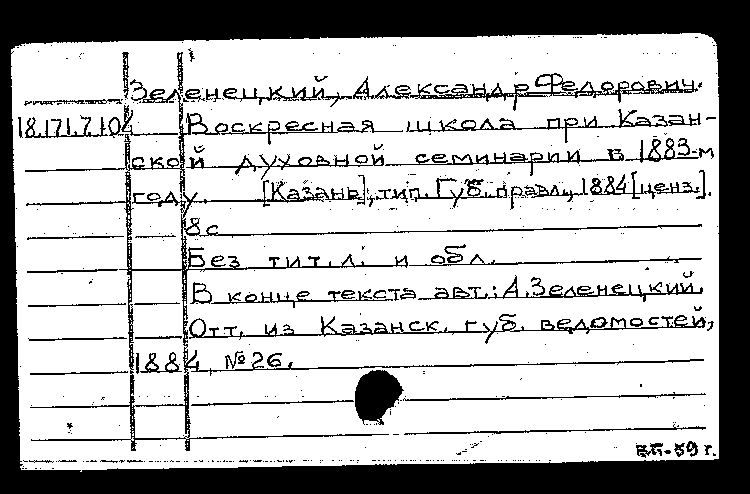 Зеленецкий, Александр Федорович.
18.171.7.104 Воскресная школа при Казан-
ской духовной семинарии в 1883-м
году. [Казань], тип. Губ. правл., 1884 [ценз.].
8с
Без тит. л. и обл.
В конце текста авт.: А. Зеленецкий.
Отт. из Казанск. губ. ведомостей,
1884, № 26.
БП-59 г.